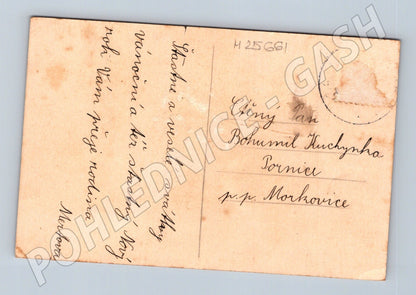 H 25661
Šťastné a veselé svátky
vánoční a též šťastný Nový
rok Vám přeje rodina
Ctěný Pan
Bohumil Kuchynka
Pornice
p. p. Morkovice
POHLEDNICE - GASH